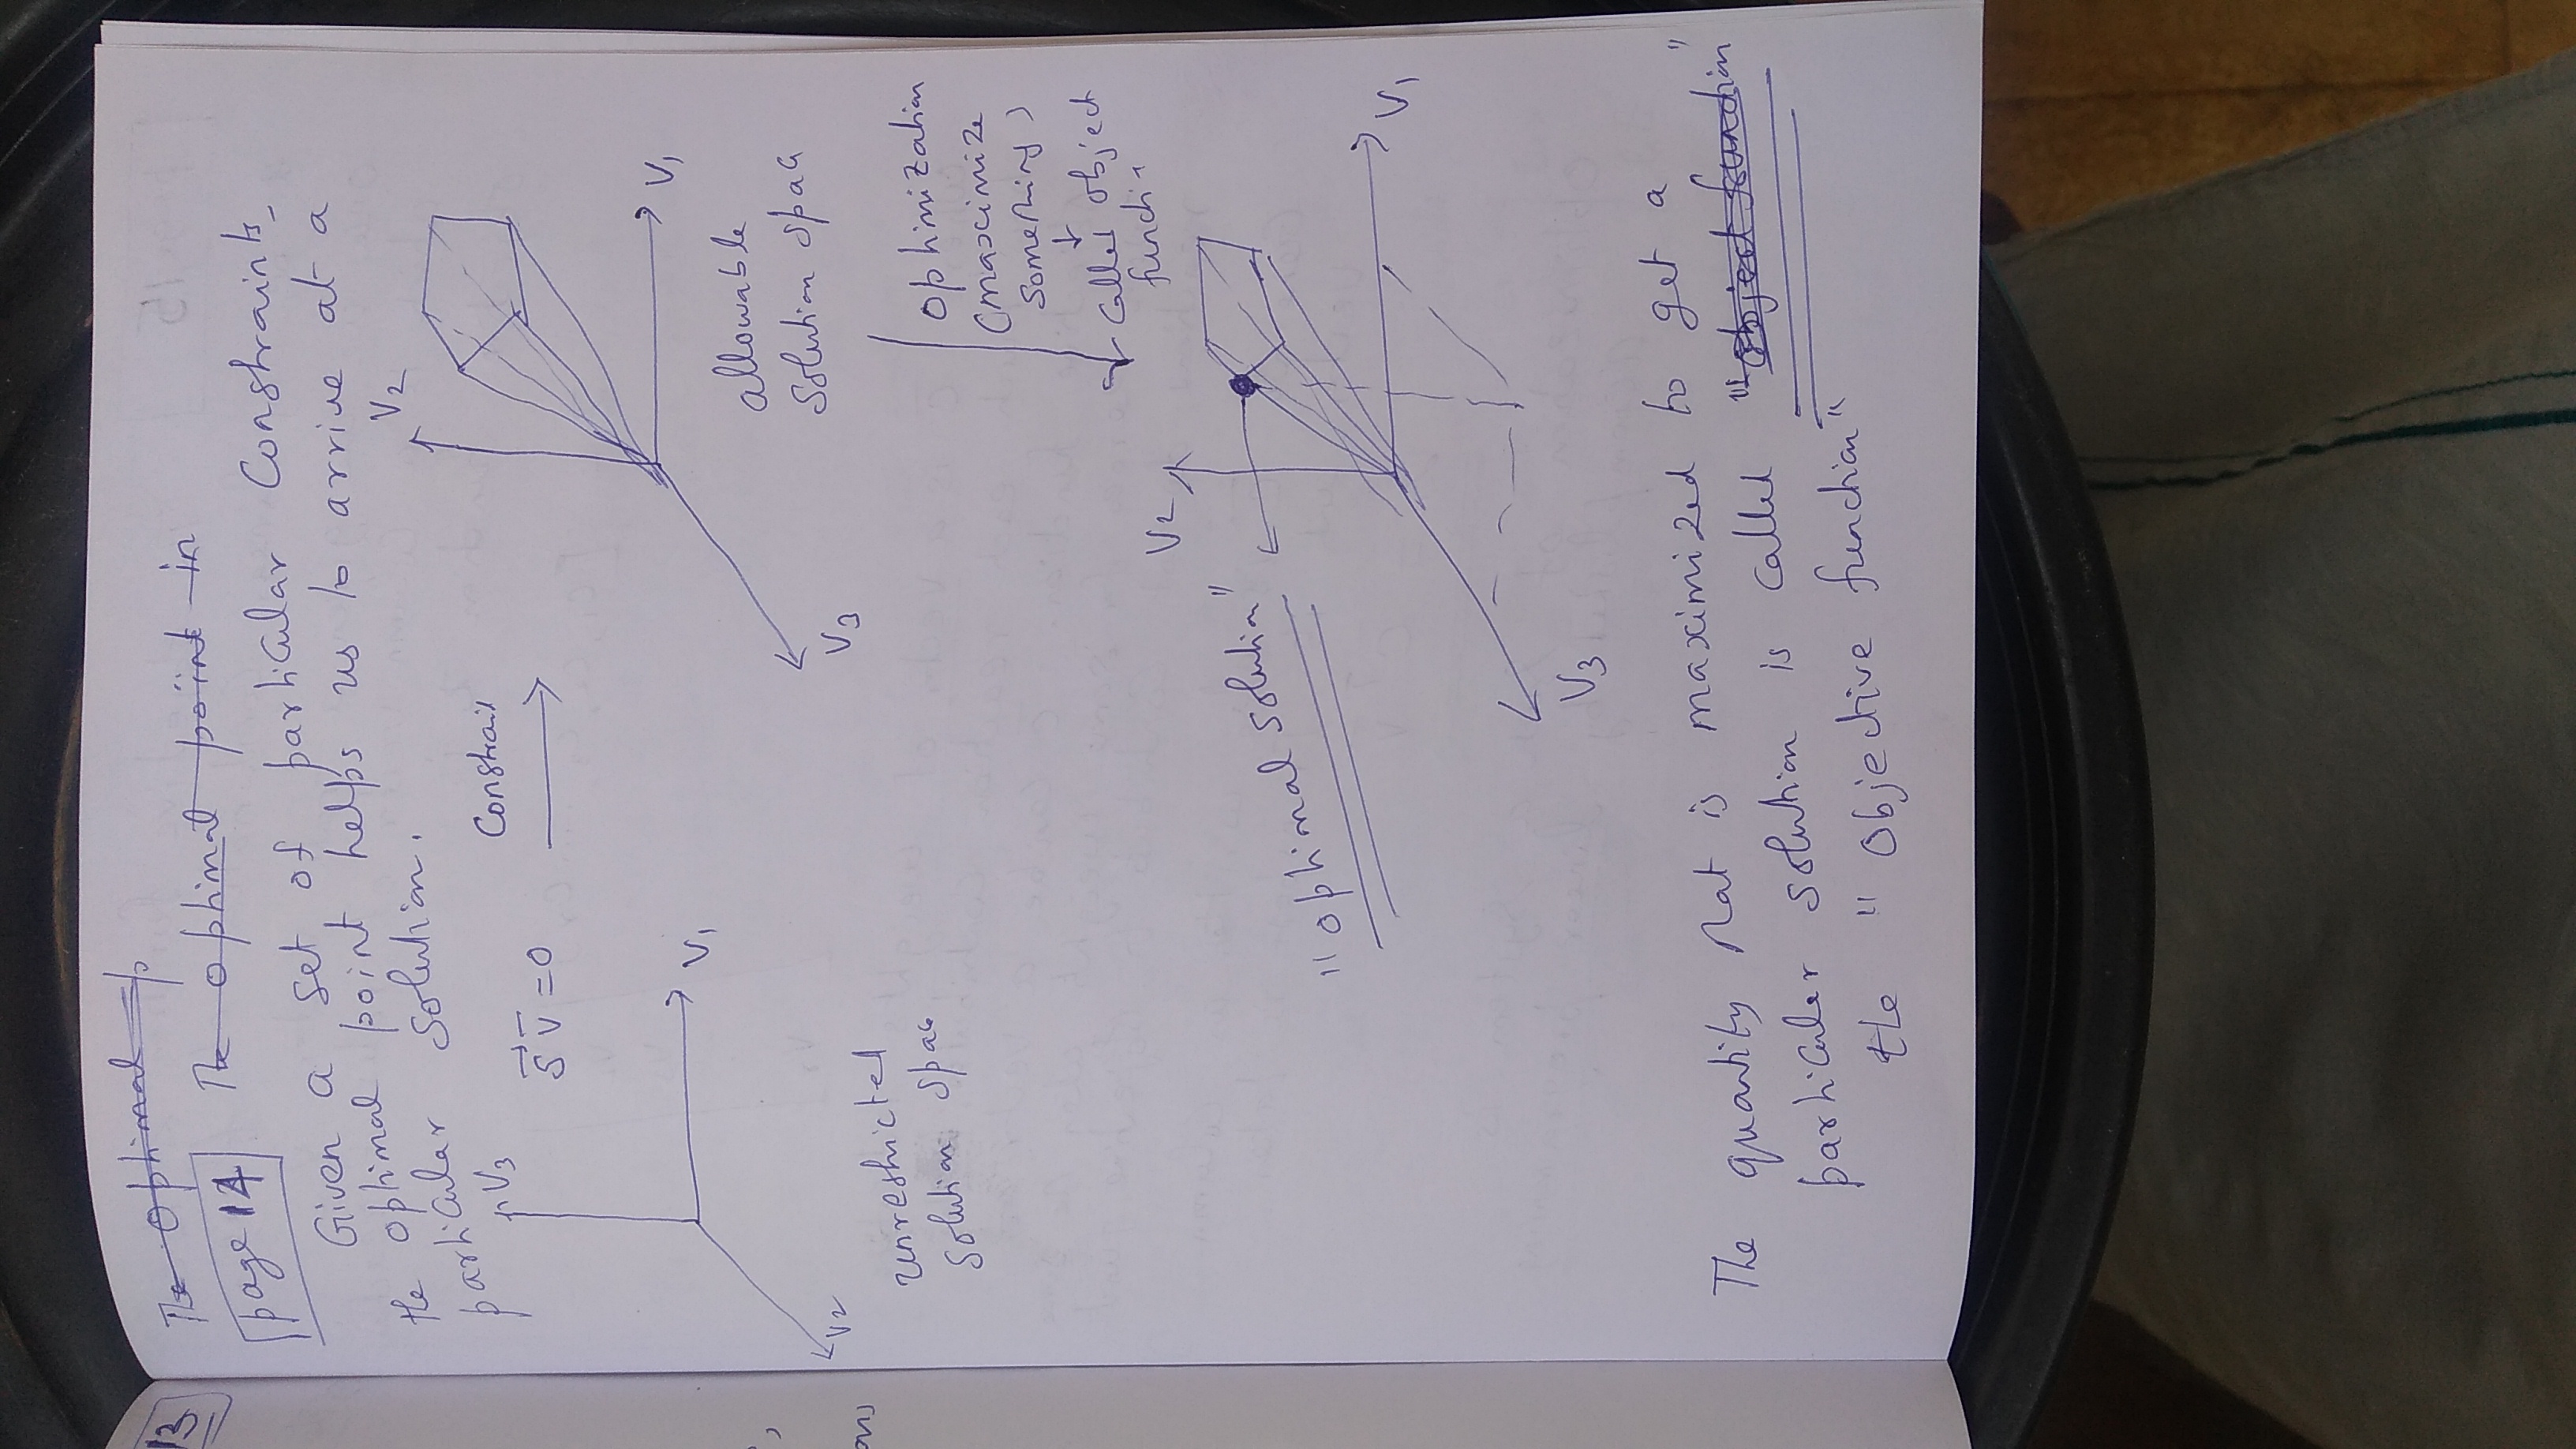 13
The optimal p
page 14
The optimal point in
Given a set of particular Constraints,
the optimal point helps us to arrive at a
particular solution.
V3
S V = 0
Constrai
V2
V1
V2
V1
V3
unrestricted
solution spac
allowable
solution spac
optimization
(maximize
something)
↓
called object
functi
V2
"optimal solution"
V1
V3
The quantity that is maximized to get a
particular solution is called "object function"
the "Objective function"